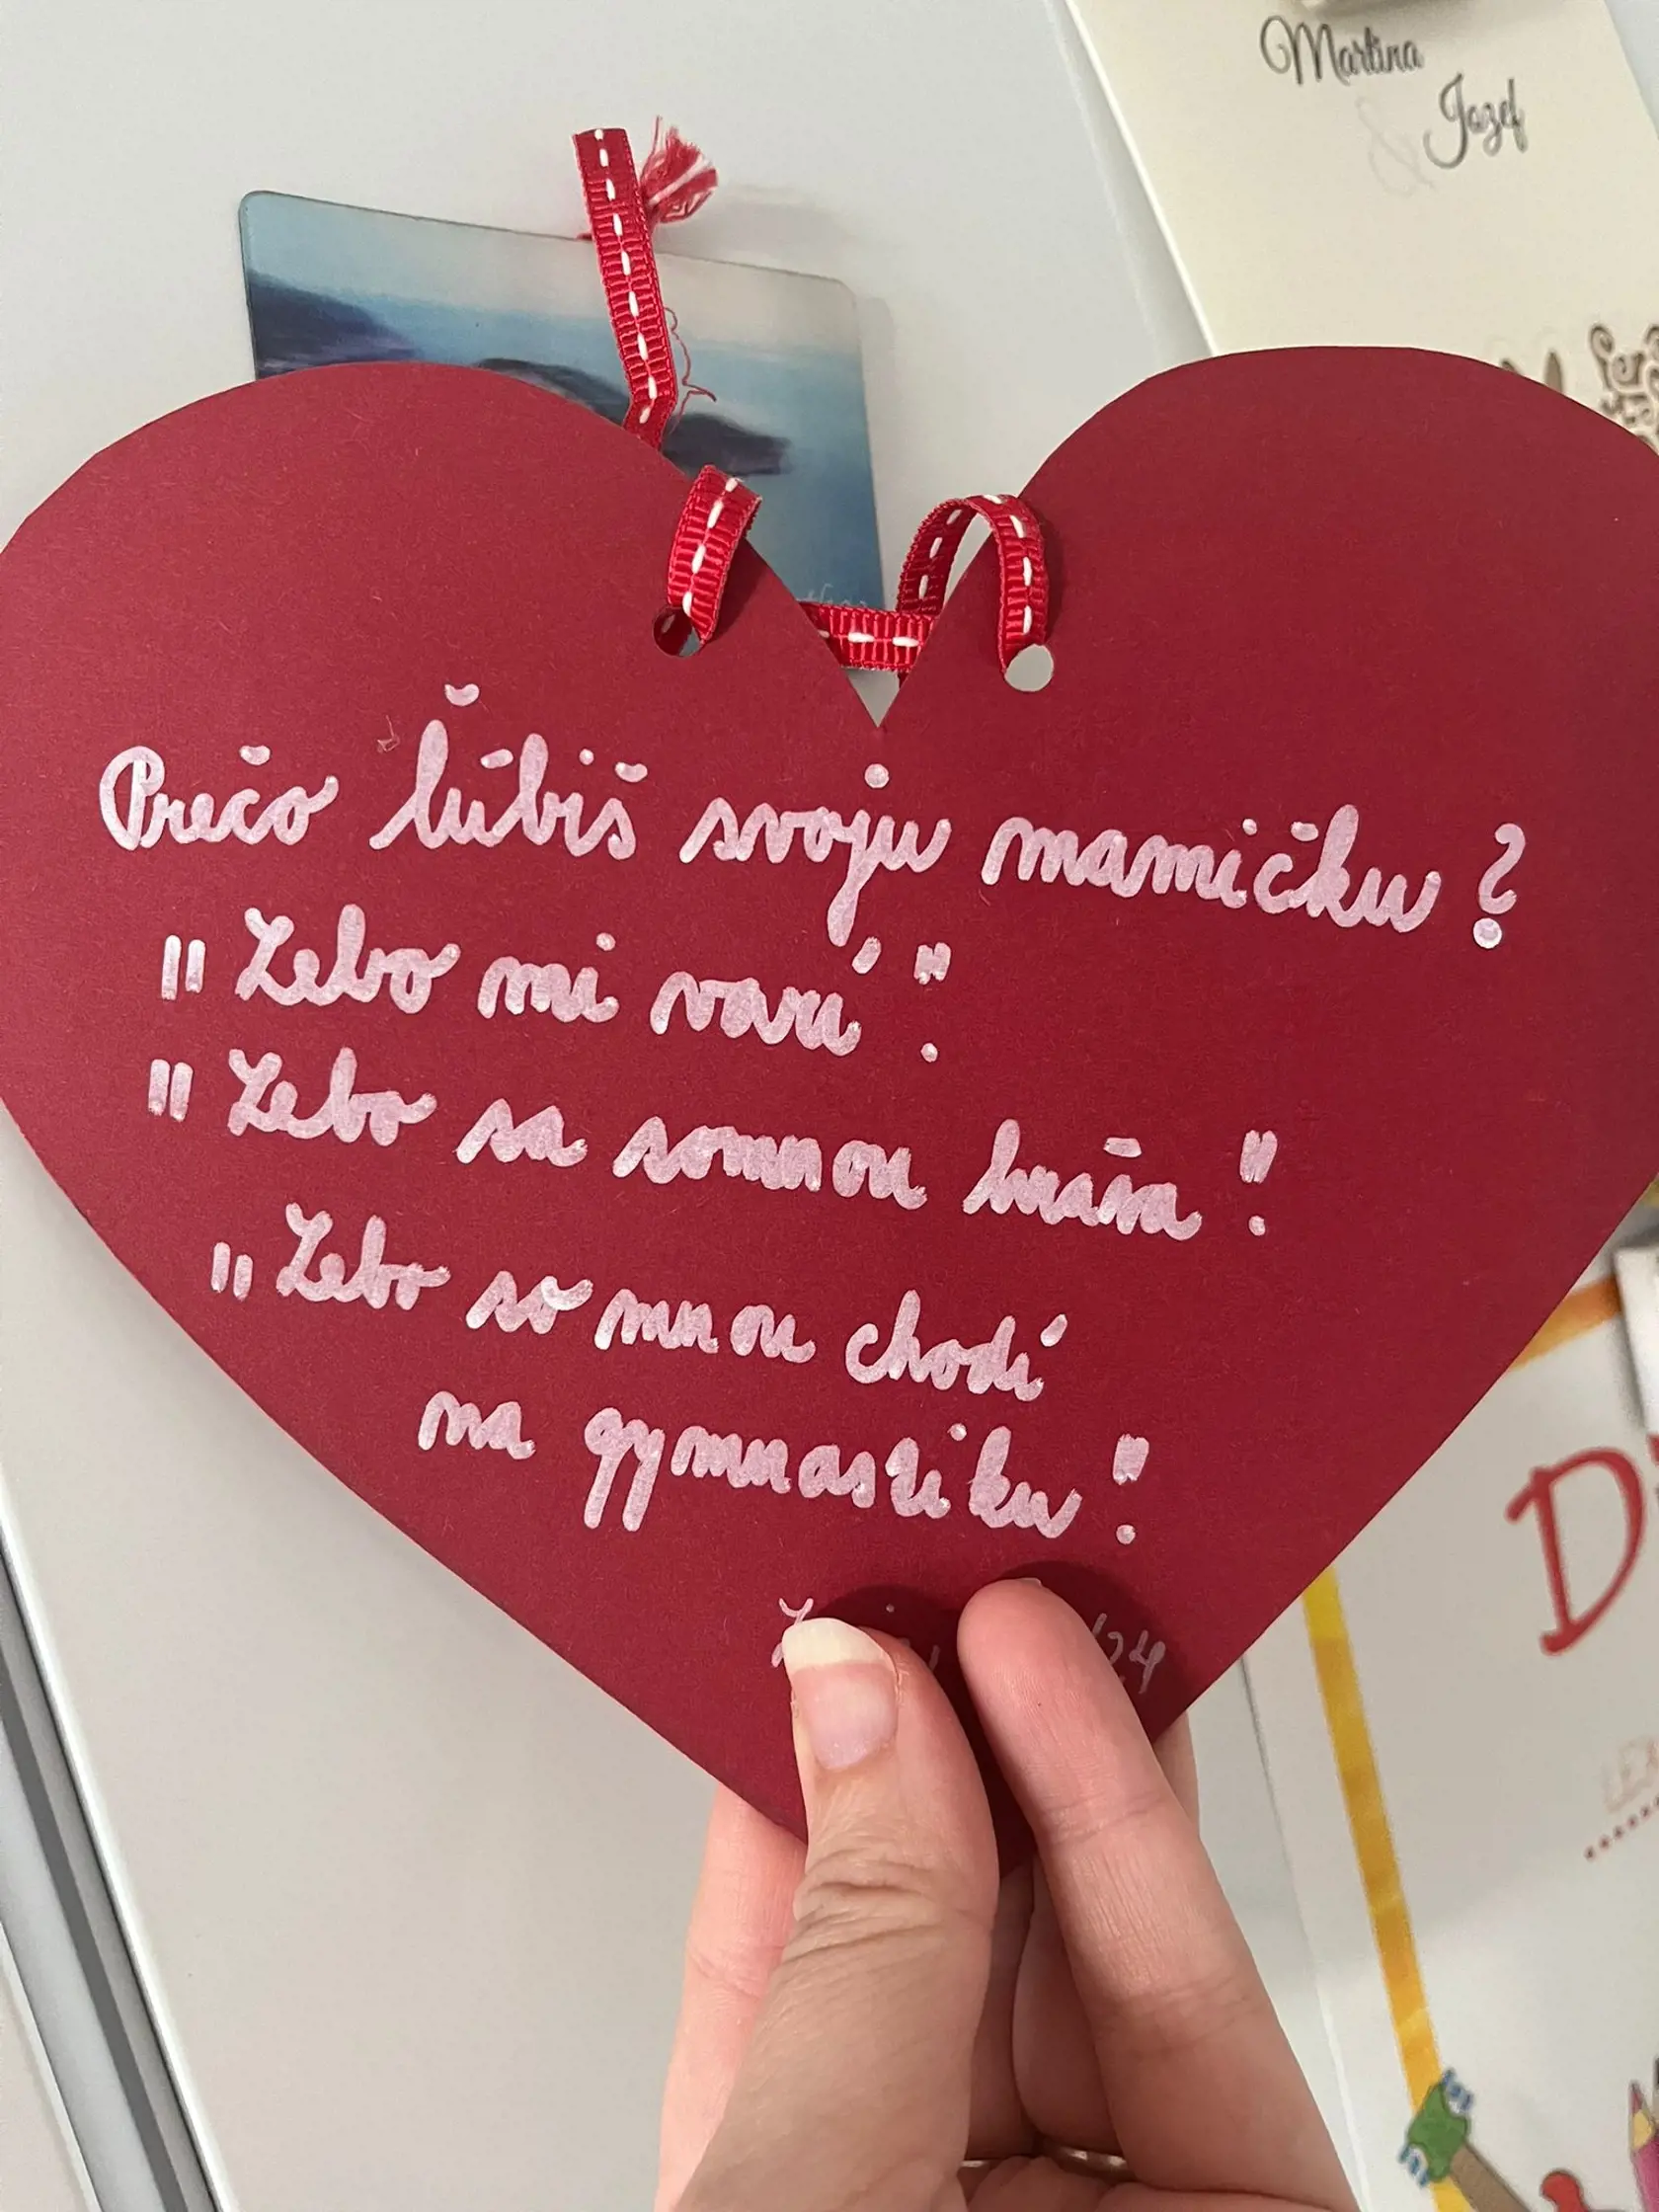 Martina
& Jozef
Prečo ľúbiš svoju mamičku?
"Lebo mi varí".
"Lebo sa somnou hráva".
"Lebo so mnou chodí
na gymnastiku".
D